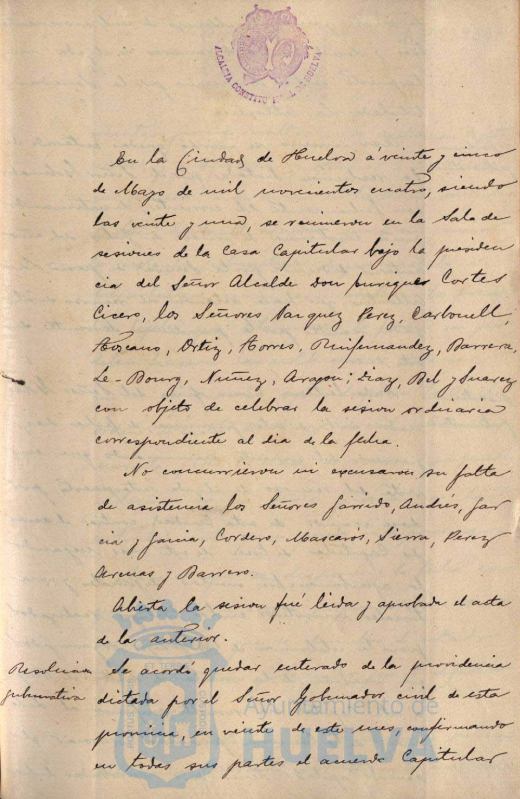 ALCALDIA CONSTITUCIONAL DE HUELVA
En la Ciudad de Huelva á veinte y cinco
de Mayo de mil novecientos cuatro, siendo
las veinte y una, se reunieron en la Sala de
sesiones de la Casa Capitular bajo la presiden
cia del Señor Alcalde Don Enrique Cortes
Cicero, los Señores Vazquez Perez, Carbonell,
Toscano, Ortiz, Torres, Ruifernandez, Barrera,
Le-Bourg, Nuñez, Aragon, Diaz, Bel y Suarez
con objeto de celebrar la sesion ordinaria
correspondiente al dia de la fecha.
No concurrieron ni excusaron su falta
de asistencia los Señores Garrido, Andrés, Gar
cia y Garcia, Cordero, Mascarós, Sierra, Perez
Arenas y Barrero.
Abierta la sesion fué leida y aprobada el acta
de la anterior.
Resolucion
gubernativa
Se acordó quedar enterado de la providencia
dictada por el Señor Gobernador civil de esta
provincia, en veinte de este mes, confirmando
en todas sus partes el acuerdo Capitular
Ayuntamiento de
HUELVA